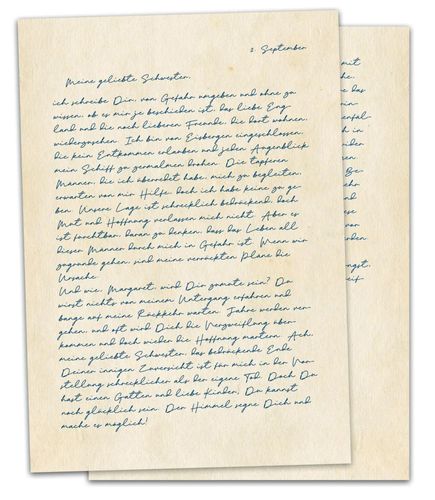 2. September
Meine geliebte Schwester,
ich schreibe Dir, von Gefahr umgeben und ohne zu
wissen, ob es mir je beschieden ist, das liebe Eng-
land und die noch lieberen Freunde, die dort wohnen,
wiederzusehen. Ich bin von Eisbergen eingeschlossen,
die kein Entkommen erlauben und jeden Augenblick
mein Schiff zu zermalmen drohen. Die tapferen
Männer, die ich überredet habe, mich zu begleiten,
erwarten von mir Hilfe, doch ich habe keine zu ge-
ben. Unsere Lage ist schrecklich bedrückend, doch
Mut und Hoffnung verlassen mich nicht. Aber es
ist furchtbar, daran zu denken, dass das Leben all
dieser Männer durch mich in Gefahr ist. Wenn wir
zugrunde gehen, sind meine verrückten Pläne die
Ursache.
Und wie, Margaret, wird Dir zumute sein? Du
wirst nichts von meinem Untergang erfahren und
bange auf meine Rückkehr warten. Jahre werden ver-
gehen, und oft wird Dich die Verzweiflung über-
kommen und doch wieder die Hoffnung martern. Ach,
meine geliebte Schwester, das bedrückende Ende
Deiner innigen Zuversicht ist für mich in der Vor-
stellung schrecklicher als der eigene Tod. Doch Du
hast einen Gatten und liebe Kinder, Du kannst
noch glücklich sein. Der Himmel segne Dich und
mache es möglich!
mit
das
in
Be-